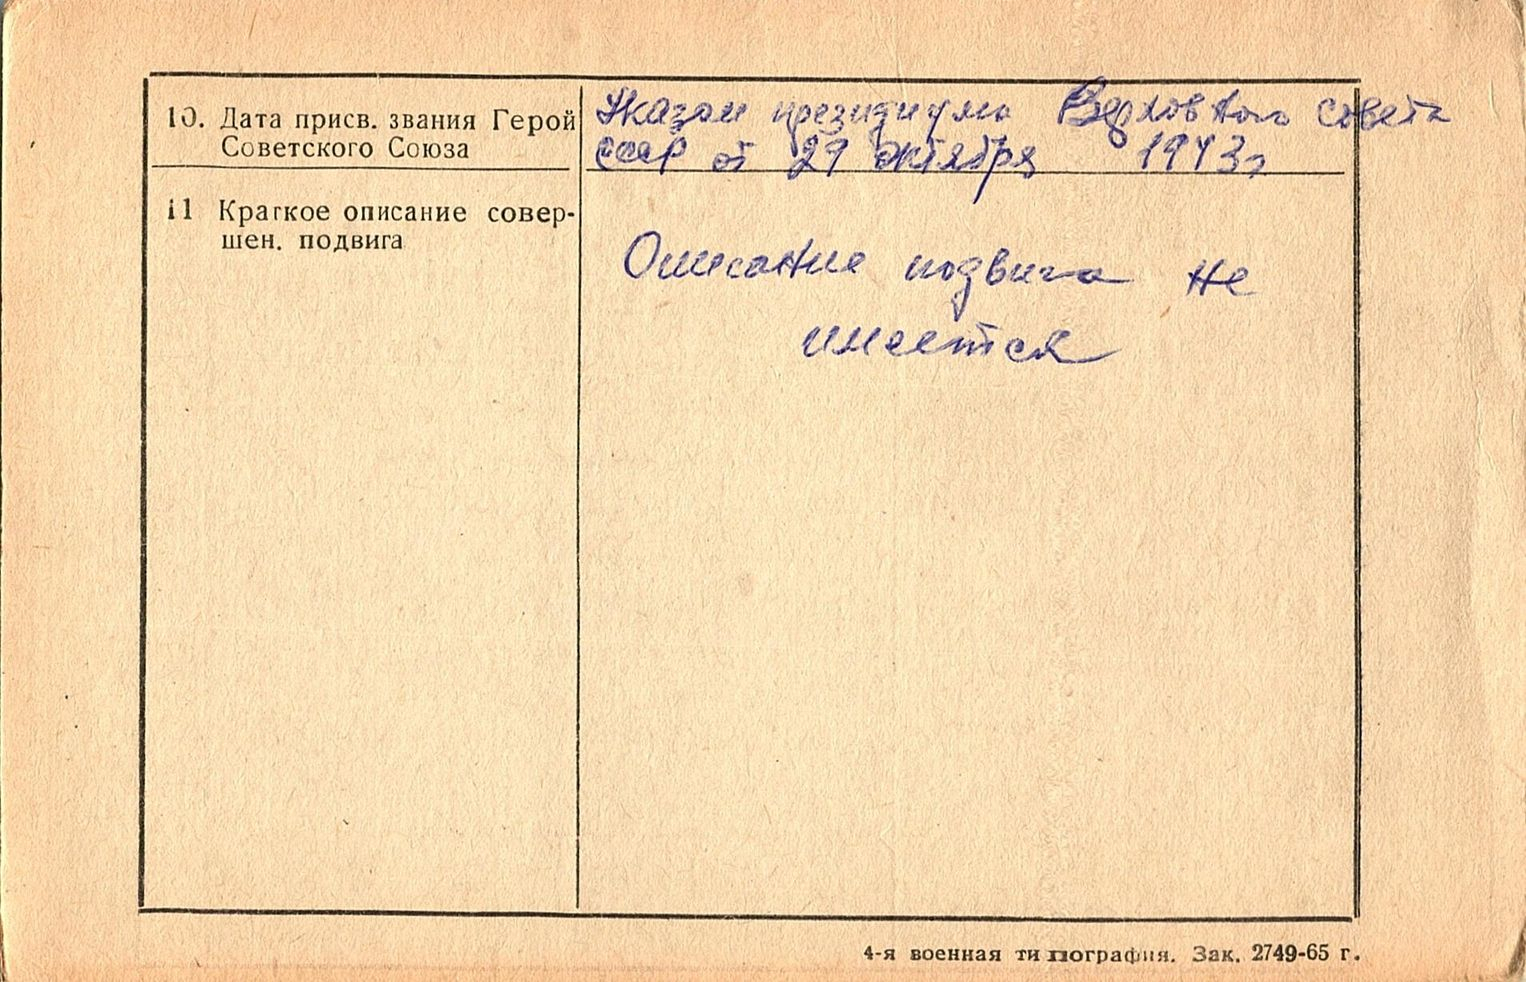 10. Дата присв. звания Герой
Советского Союза
Указом президиума Верховного Совета
СССР от 29 октября 1943г
11 Краткое описание совер-
шен. подвига
Описание подвига не
имеется
4-я военная типография. Зак. 2749-65 г.